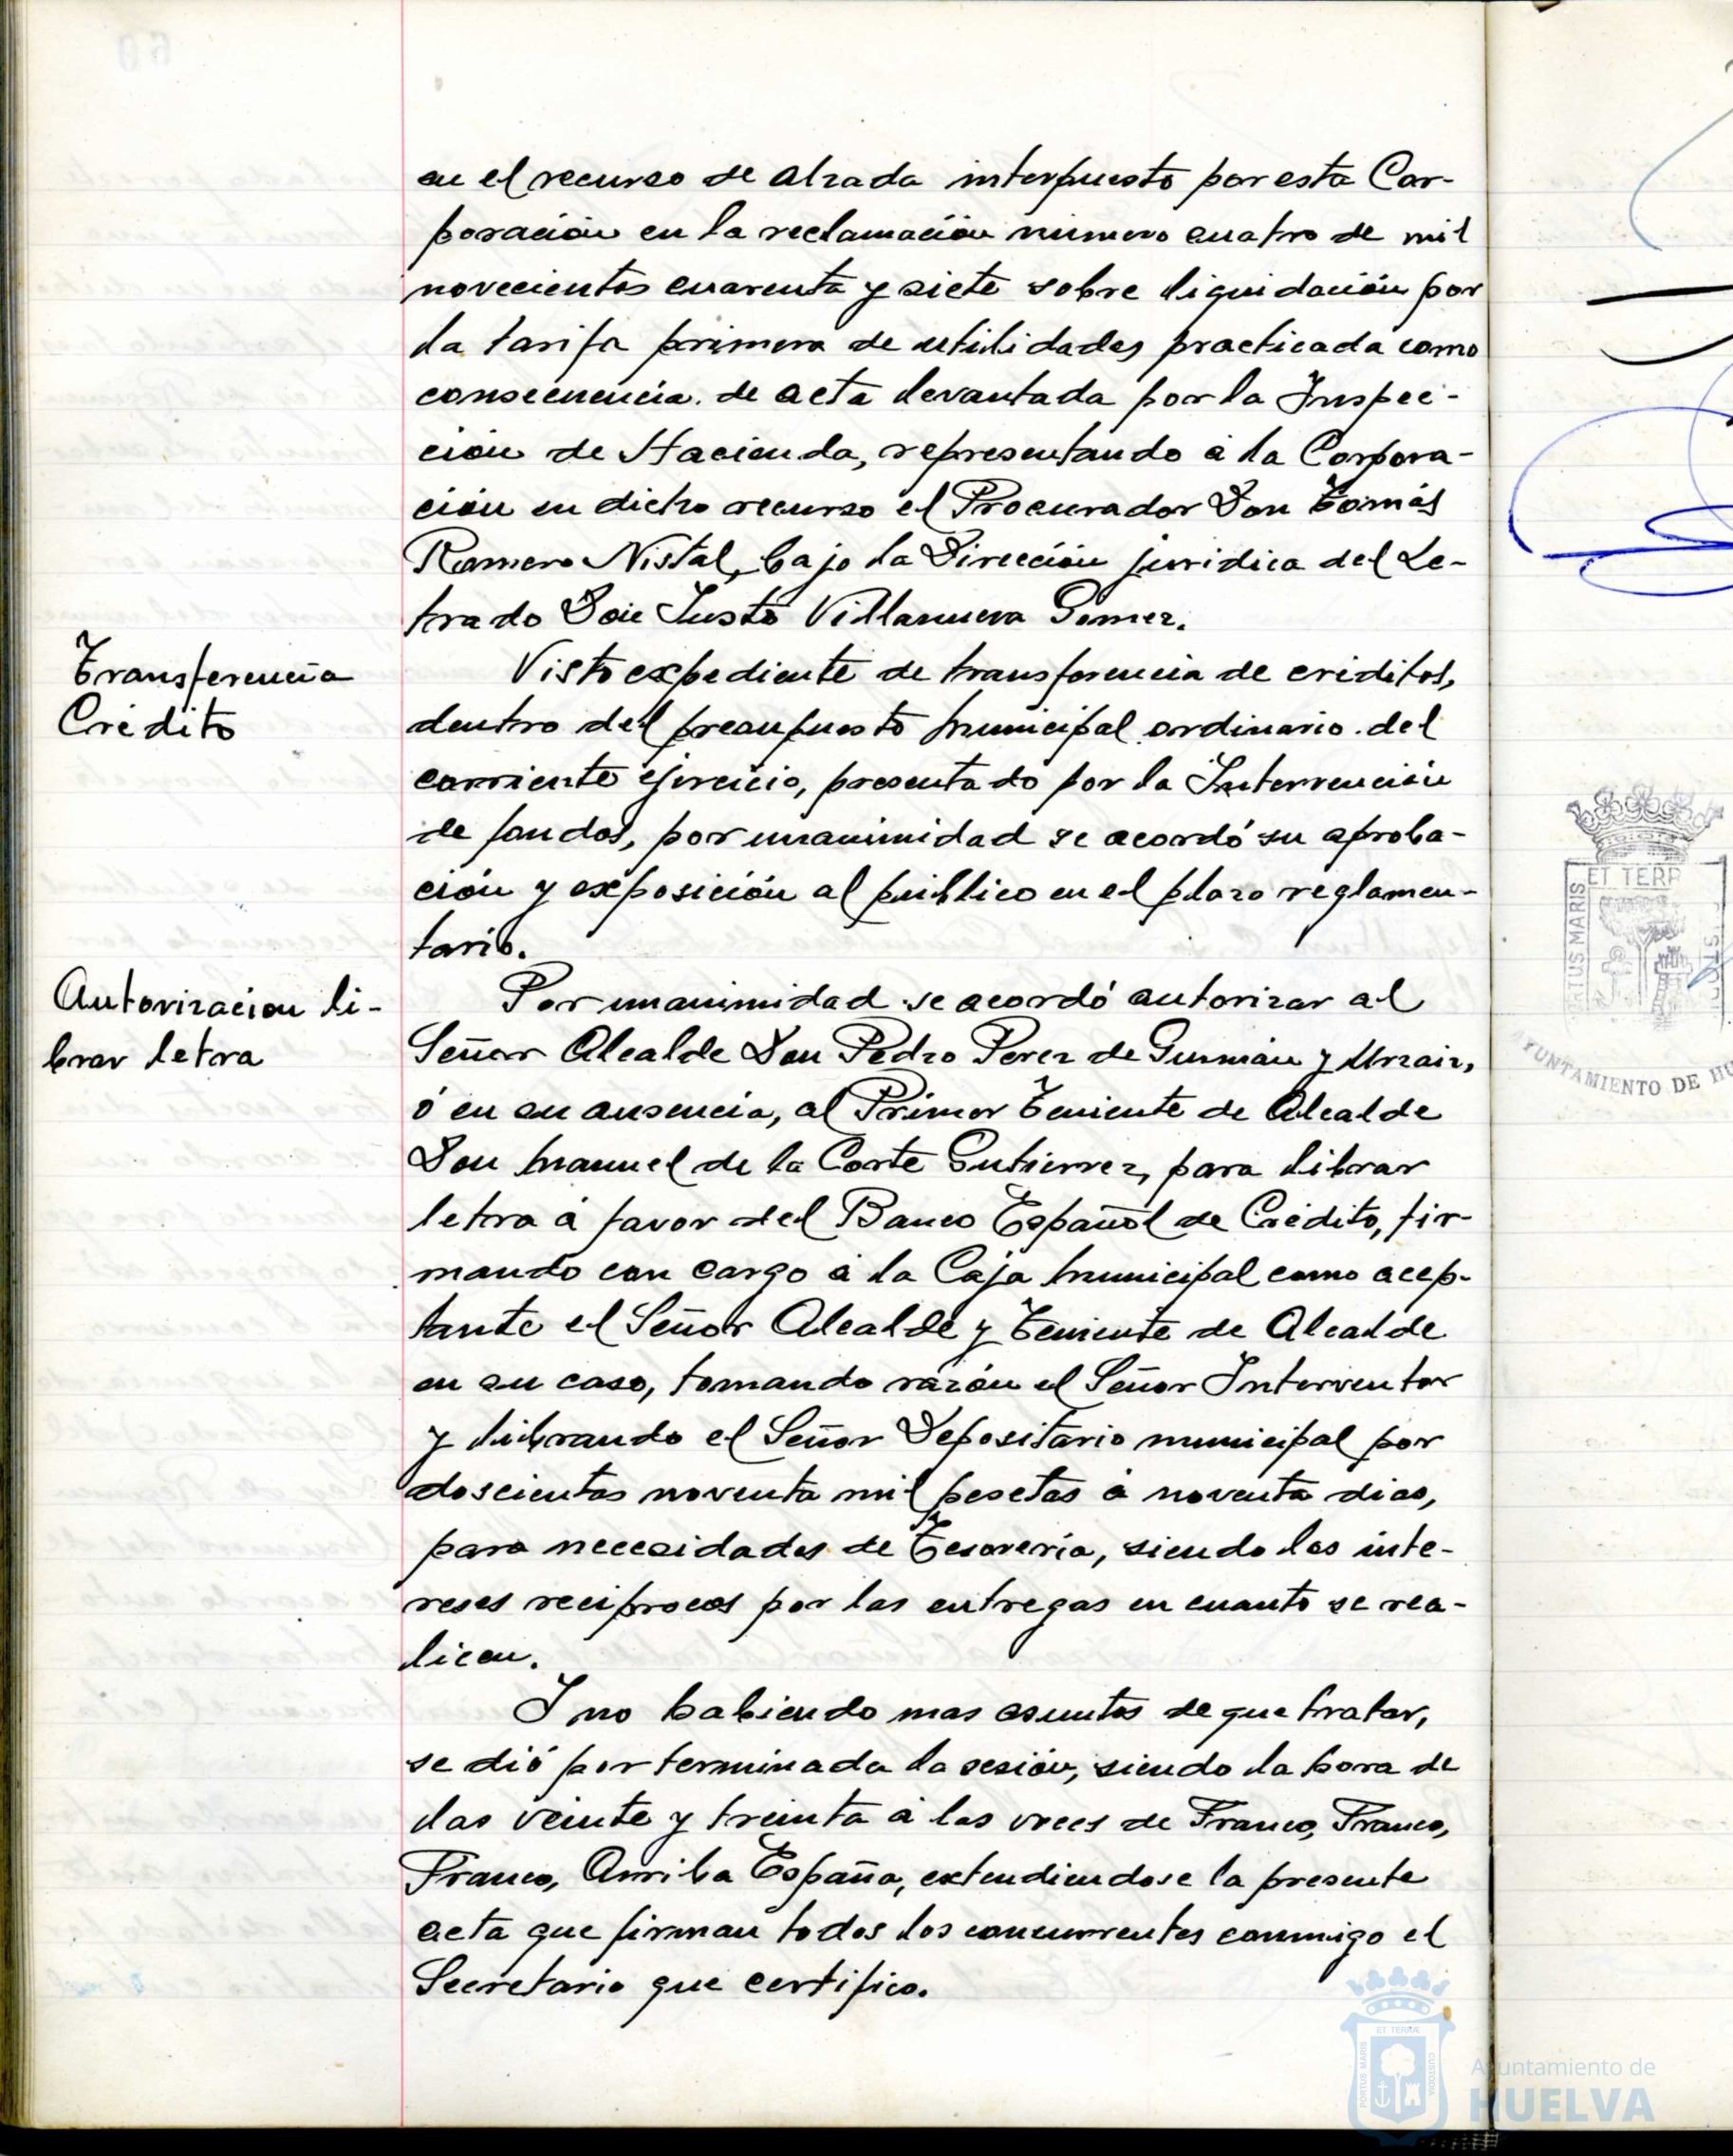 en el recurso de alzada interpuesto por esta Cor-
poración en la reclamación número cuatro de mil
novecientos cuarenta y siete sobre liquidación por
la tarifa primera de utilidades practicada como
consecuencia de acta levantada por la Inspec-
ción de Hacienda, representando á la Corpora-
ción en dicho recurso el Procurador Don Tomás
Romero Nistal, bajo la Dirección juridica del Le-
trado Don Justo Villanueva Gomez.
Transferencia
Crédito
Visto expediente de transferencia de créditos,
dentro del presupuesto municipal ordinario del
corriente ejercicio, presentado por la Intervención
de fondos, por unanimidad se acordó su aproba-
ción y exposición al público en el plazo reglamen-
tario.
Autorizacion li-
brar letra
Por unanimidad se acordó autorizar al
Señor Alcalde Don Pedro Perez de Guzmán y Urzaiz,
ó en su ausencia, al Primer Teniente de Alcalde
Don Manuel de la Corte Gutierrez, para librar
letra á favor del Banco Español de Crédito, fir-
mando con cargo á la Caja Municipal como acep-
tante el Señor Alcalde y Teniente de Alcalde
en su caso, tomando razón el Señor Interventor
y librando el Señor Depositario municipal por
doscientas noventa mil pesetas á noventa dias,
para necesidades de Tesorería, siendo los inte-
reses reciprocos por las entregas en cuanto se rea-
licen.
Y no habiendo mas asuntos de que tratar,
se dió por terminada la sesión, siendo la hora de
las veinte y treinta á las voces de Franco, Franco,
Franco, Arriba España, extendiendose la presente
acta que firman todos los concurrentes conmigo el
Secretario que certifico.
ET TERR
AYUNTAMIENTO DE HU
PORTUS MARIS
ET TERRAE
CUSTODIA
Ayuntamiento de
HUELVA